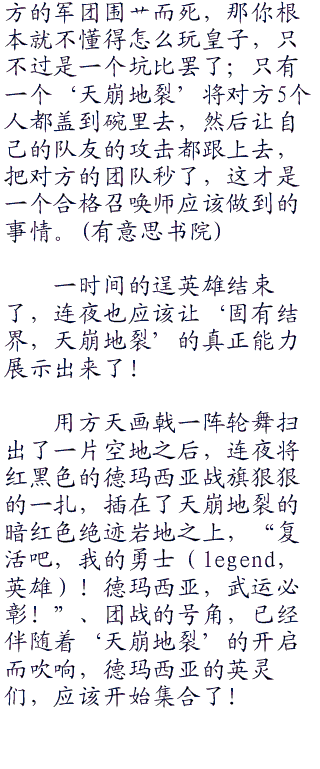 方的军团围艹而死，那你根
本就不懂得怎么玩皇子，只
不过是一个坑比罢了；只有
一个‘天崩地裂’将对方5个
人都盖到碗里去，然后让自
己的队友的攻击都跟上去，
把对方的团队秒了，这才是
一个合格召唤师应该做到的
事情。(有意思书院)
一时间的逞英雄结束
了，连夜也应该让‘固有结
界，天崩地裂’的真正能力
展示出来了！
用方天画戟一阵轮舞扫
出了一片空地之后，连夜将
红黑色的德玛西亚战旗狠狠
的一扎，插在了天崩地裂的
暗红色绝迹岩地之上，“复
活吧，我的勇士（legend，
英雄）！德玛西亚，武运必
彰！”、团战的号角，已经
伴随着‘天崩地裂’的开启
而吹响，德玛西亚的英灵
们，应该开始集合了！